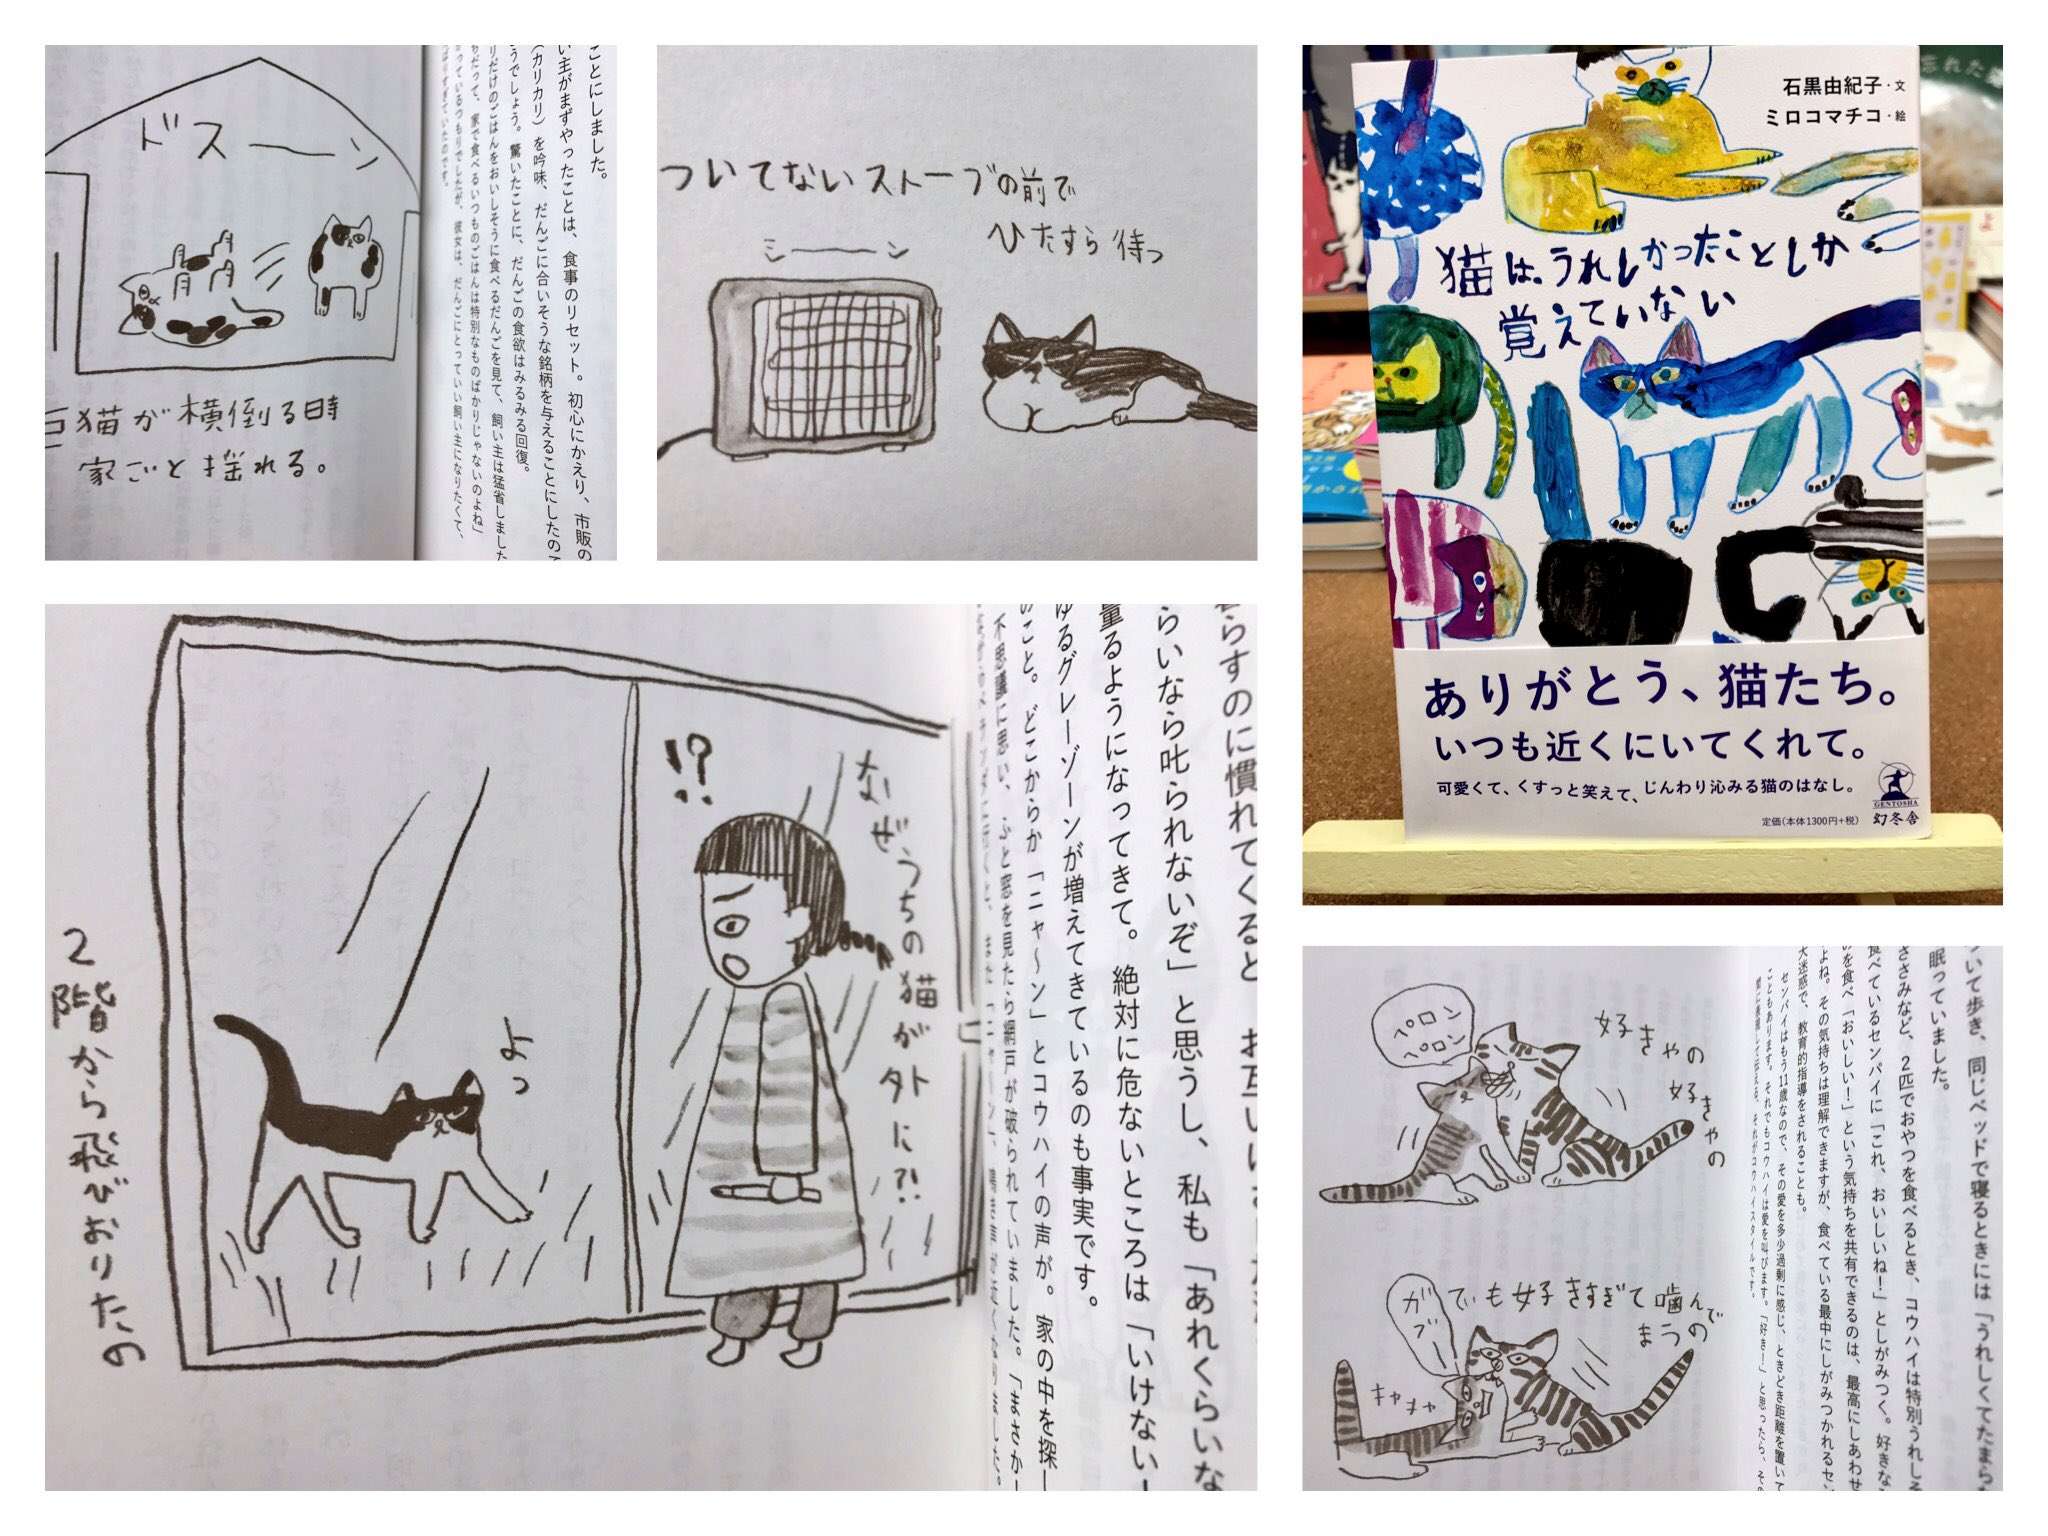 ドスーン
猫が横倒る時
家ごと揺れる。
ことにしました。
い主がまずやったことは、食事のリセット。初心にかえり、市販の
(カリカリ)を吟味、だんごに合いそうな銘柄を与えることにしたので
うでしょう。驚いたことに、だんごの食欲はみるみる回復。
りだけのごはんをおいしそうに食べるだんごを見て、飼い主は猛省しました
ちだって、家で食べるいつものごはんは特別なものばかりじゃないのよね」
っているつもりでしたが、彼女は、だんごにとっていい飼い主になりたくて、
ばりすぎていたのです。
ついてないストーブの前で
ひたすら待つ
シーーン
石黒由紀子・文
ミロコマチコ・絵
猫は、うれしかったことしか
覚えていない
ありがとう、猫たち。
いつも近くにいてくれて。
可愛くて、くすっと笑えて、じんわり沁みる猫のはなし。
定価(本体1300円+税)
GENTOSHA
幻冬舎
忘れた
なぜうちの猫が外に?!
!?
よっ
2階から飛びおりたの
らすのに慣れてくると、お互いに
らいなら叱られないぞ」と思うし、私も「あれくらいな
量るようになってきて。絶対に危ないところは「いけない!
ゆるグレーゾーンが増えてきているのも事実です。
のこと。どこからか「ニャ〜ン」とコウハイの声が。家の中を探し
不思議に思い、ふと窓を見たら網戸が破られていました。「まさか!
ペロン
ペロン
好きゃの
好きゃの
ガブー
でも好きすぎて噛んで
まうの
キャキャ
ついて歩き、同じベッドで寝るときには「うれしくてたまら
眠っていました。
ささみなど、2匹でおやつを食べるとき、コウハイは特別うれしそ
食べているセンパイに「これ、おいしいね!」としがみつく。好きな
のを食べ「おいしい!」という気持ちを共有できるのは、最高にしあわせ
よね。その気持ちは理解できますが、食べている最中にしがみつかれるセン
大迷惑で、教育的指導をされることも。
センパイはもう11歳なので、その愛を多少過剰に感じ、ときどき距離を置いて
こともあります。それでもコウハイは愛を叫びます。「好き!」と思ったら、その
間に表現して伝える、それがコウハイスタイルです。